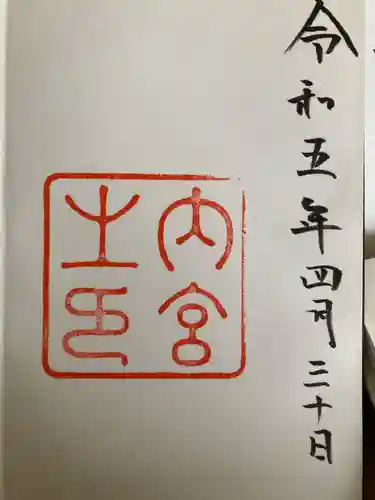 令和五年四月三十日
内宮
之印